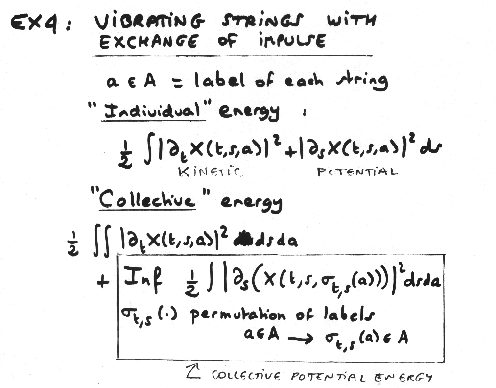 EX4: VIBRATING STRINGS WITH
EXCHANGE OF IMPULSE
a ∈ A = label of each string
"Individual" energy :
½ ∫|∂ₜX(t,s,a)|² + |∂ₛX(t,s,a)|² ds
KINETIC POTENTIAL
"Collective" energy
½ ∫∫ |∂ₜX(t,s,a)|² dsda
+ Inf ½ ∫∫|∂ₛ(X(t,s,σₜ,ₛ(a)))|² dsda
σₜ,ₛ(.) permutation of labels
a∈A → σₜ,ₛ(a) ∈ A
COLLECTIVE POTENTIAL ENERGY